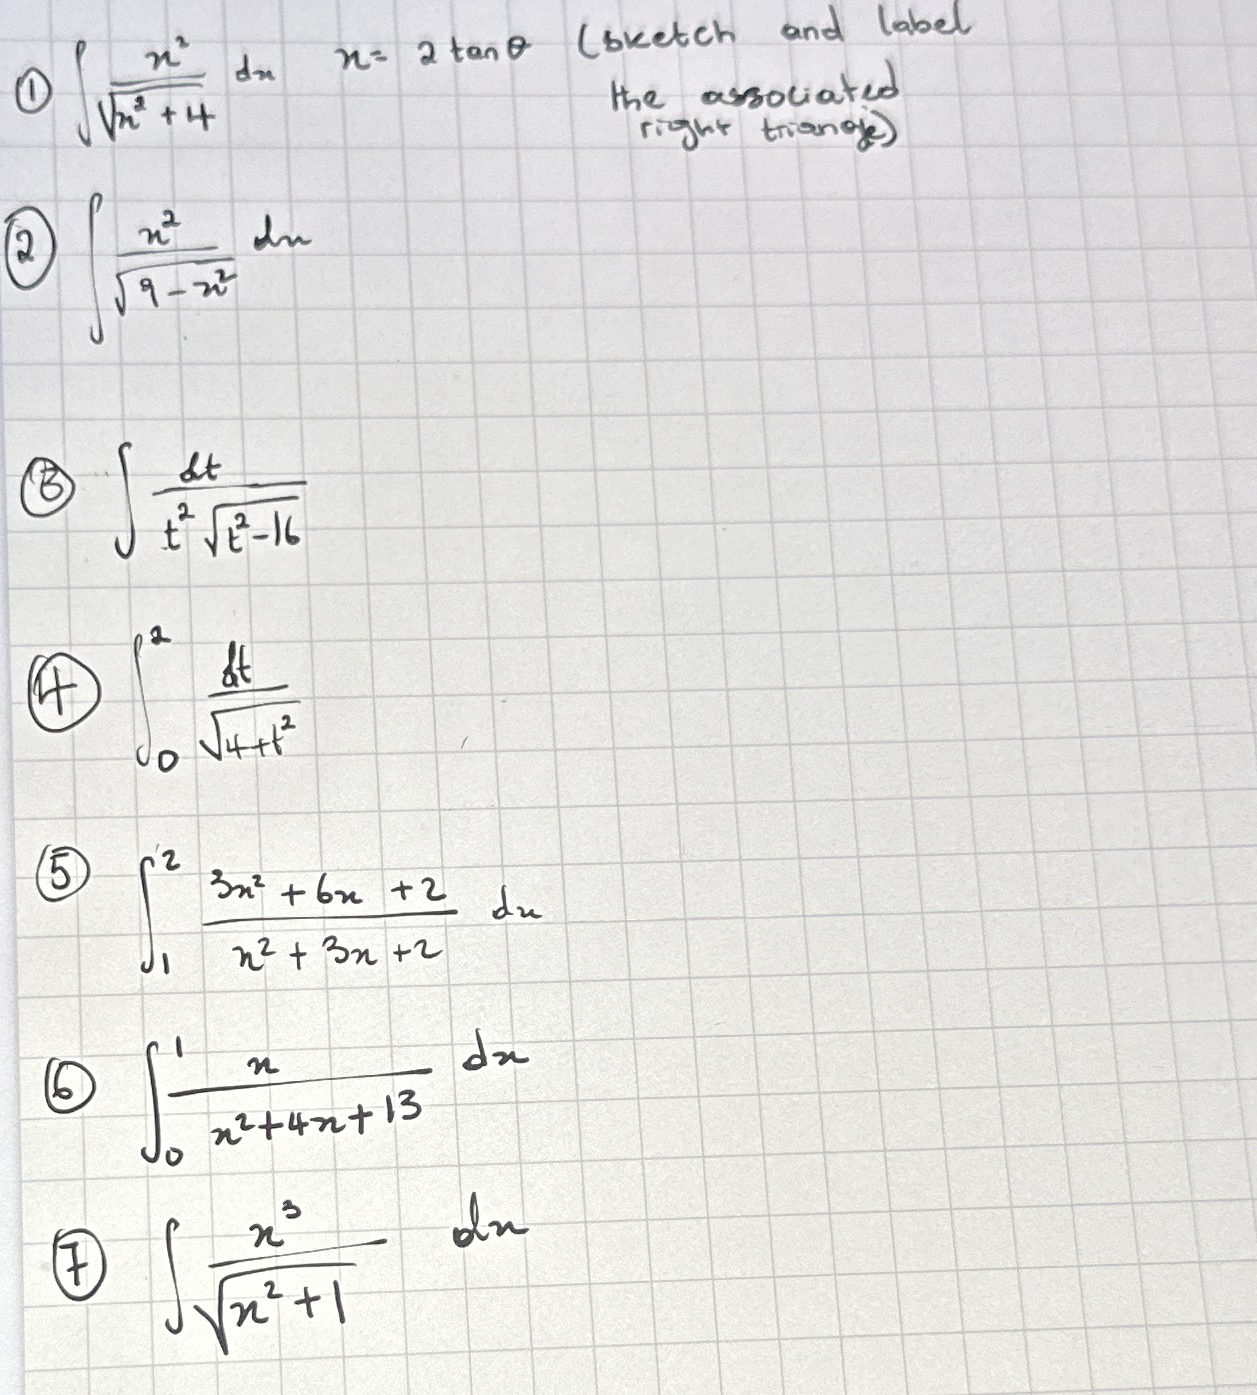 ① ∫ x²/√(x² + 4) dx x = 2 tan θ (sketch and label
the associated
right triangle)
② ∫ x²/√(9 − x²) dx
③ ∫ dt/(t² √(t² − 16))
④ ∫₀² dt/√(4 + t²)
⑤ ∫₁² (3x² + 6x + 2)/(x² + 3x + 2) dx
⑥ ∫₀¹ x/(x² + 4x + 13) dx
⑦ ∫ x³/√(x² + 1) dx